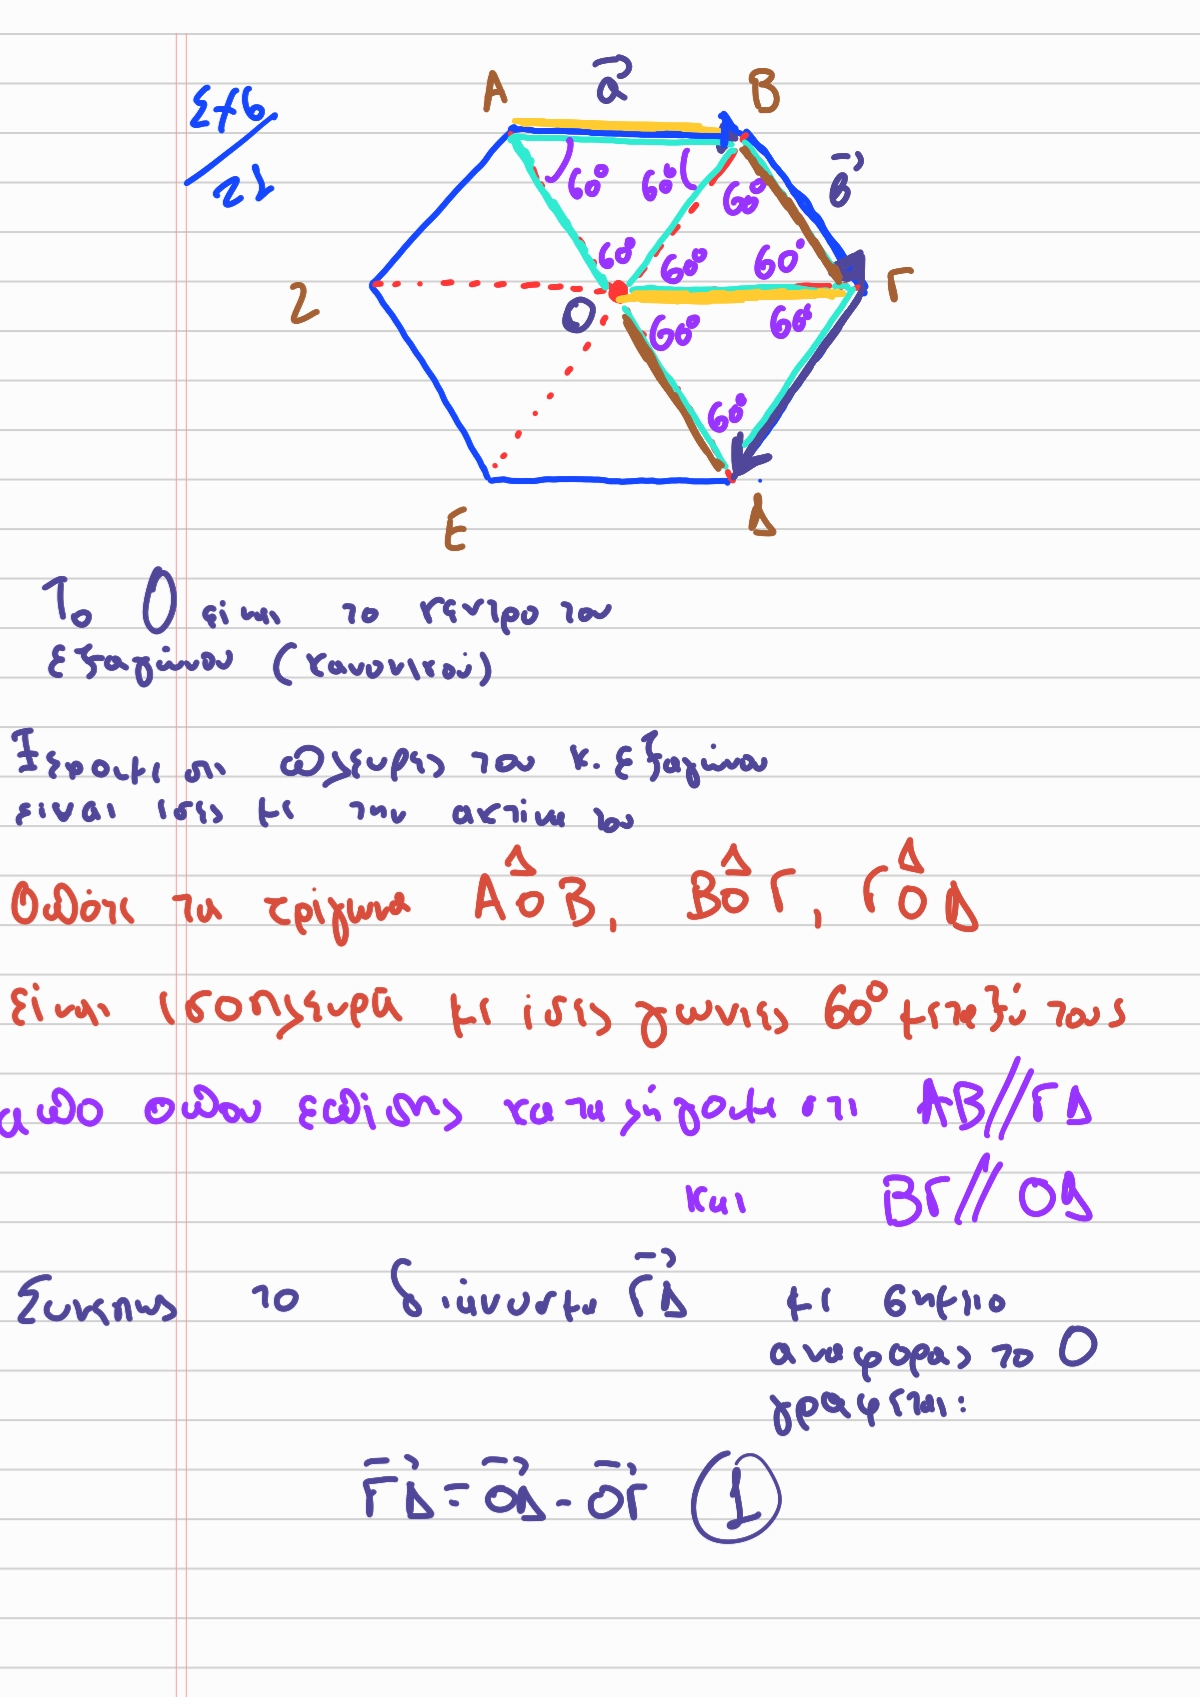 Σ/β
21
A
α
B
β
60° 60° 60°
60° 60° 60°
Z
O
Γ
60° 60°
60°
E
Δ
Το Ο είναι το κεντρο του
εξαγώνου (κανονικού)
Ξερουμε οτι πλευρες του κ. εξαγώνου
ειναι ισες με την ακτίνα του
Οπότε τα τρίγωνα ΑΟΒ, ΒΟΓ, ΓΟΔ
είναι ισοπλευρα με ισες γωνιες 60° μεταξύ τους
απο οπου επίσης καταλήγουμε οτι ΑΒ//ΓΔ
και ΒΓ//ΟΔ
Συνεπως το διάνυσμα ΓΔ με σημειο
αναφορας το Ο
γραφεται:
ΓΔ = ΟΔ - ΟΓ 1